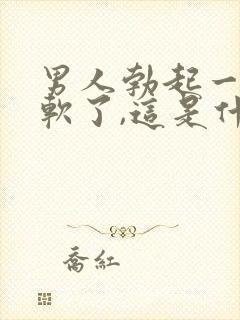 男人勃起一
軟了,這是什
喬紅